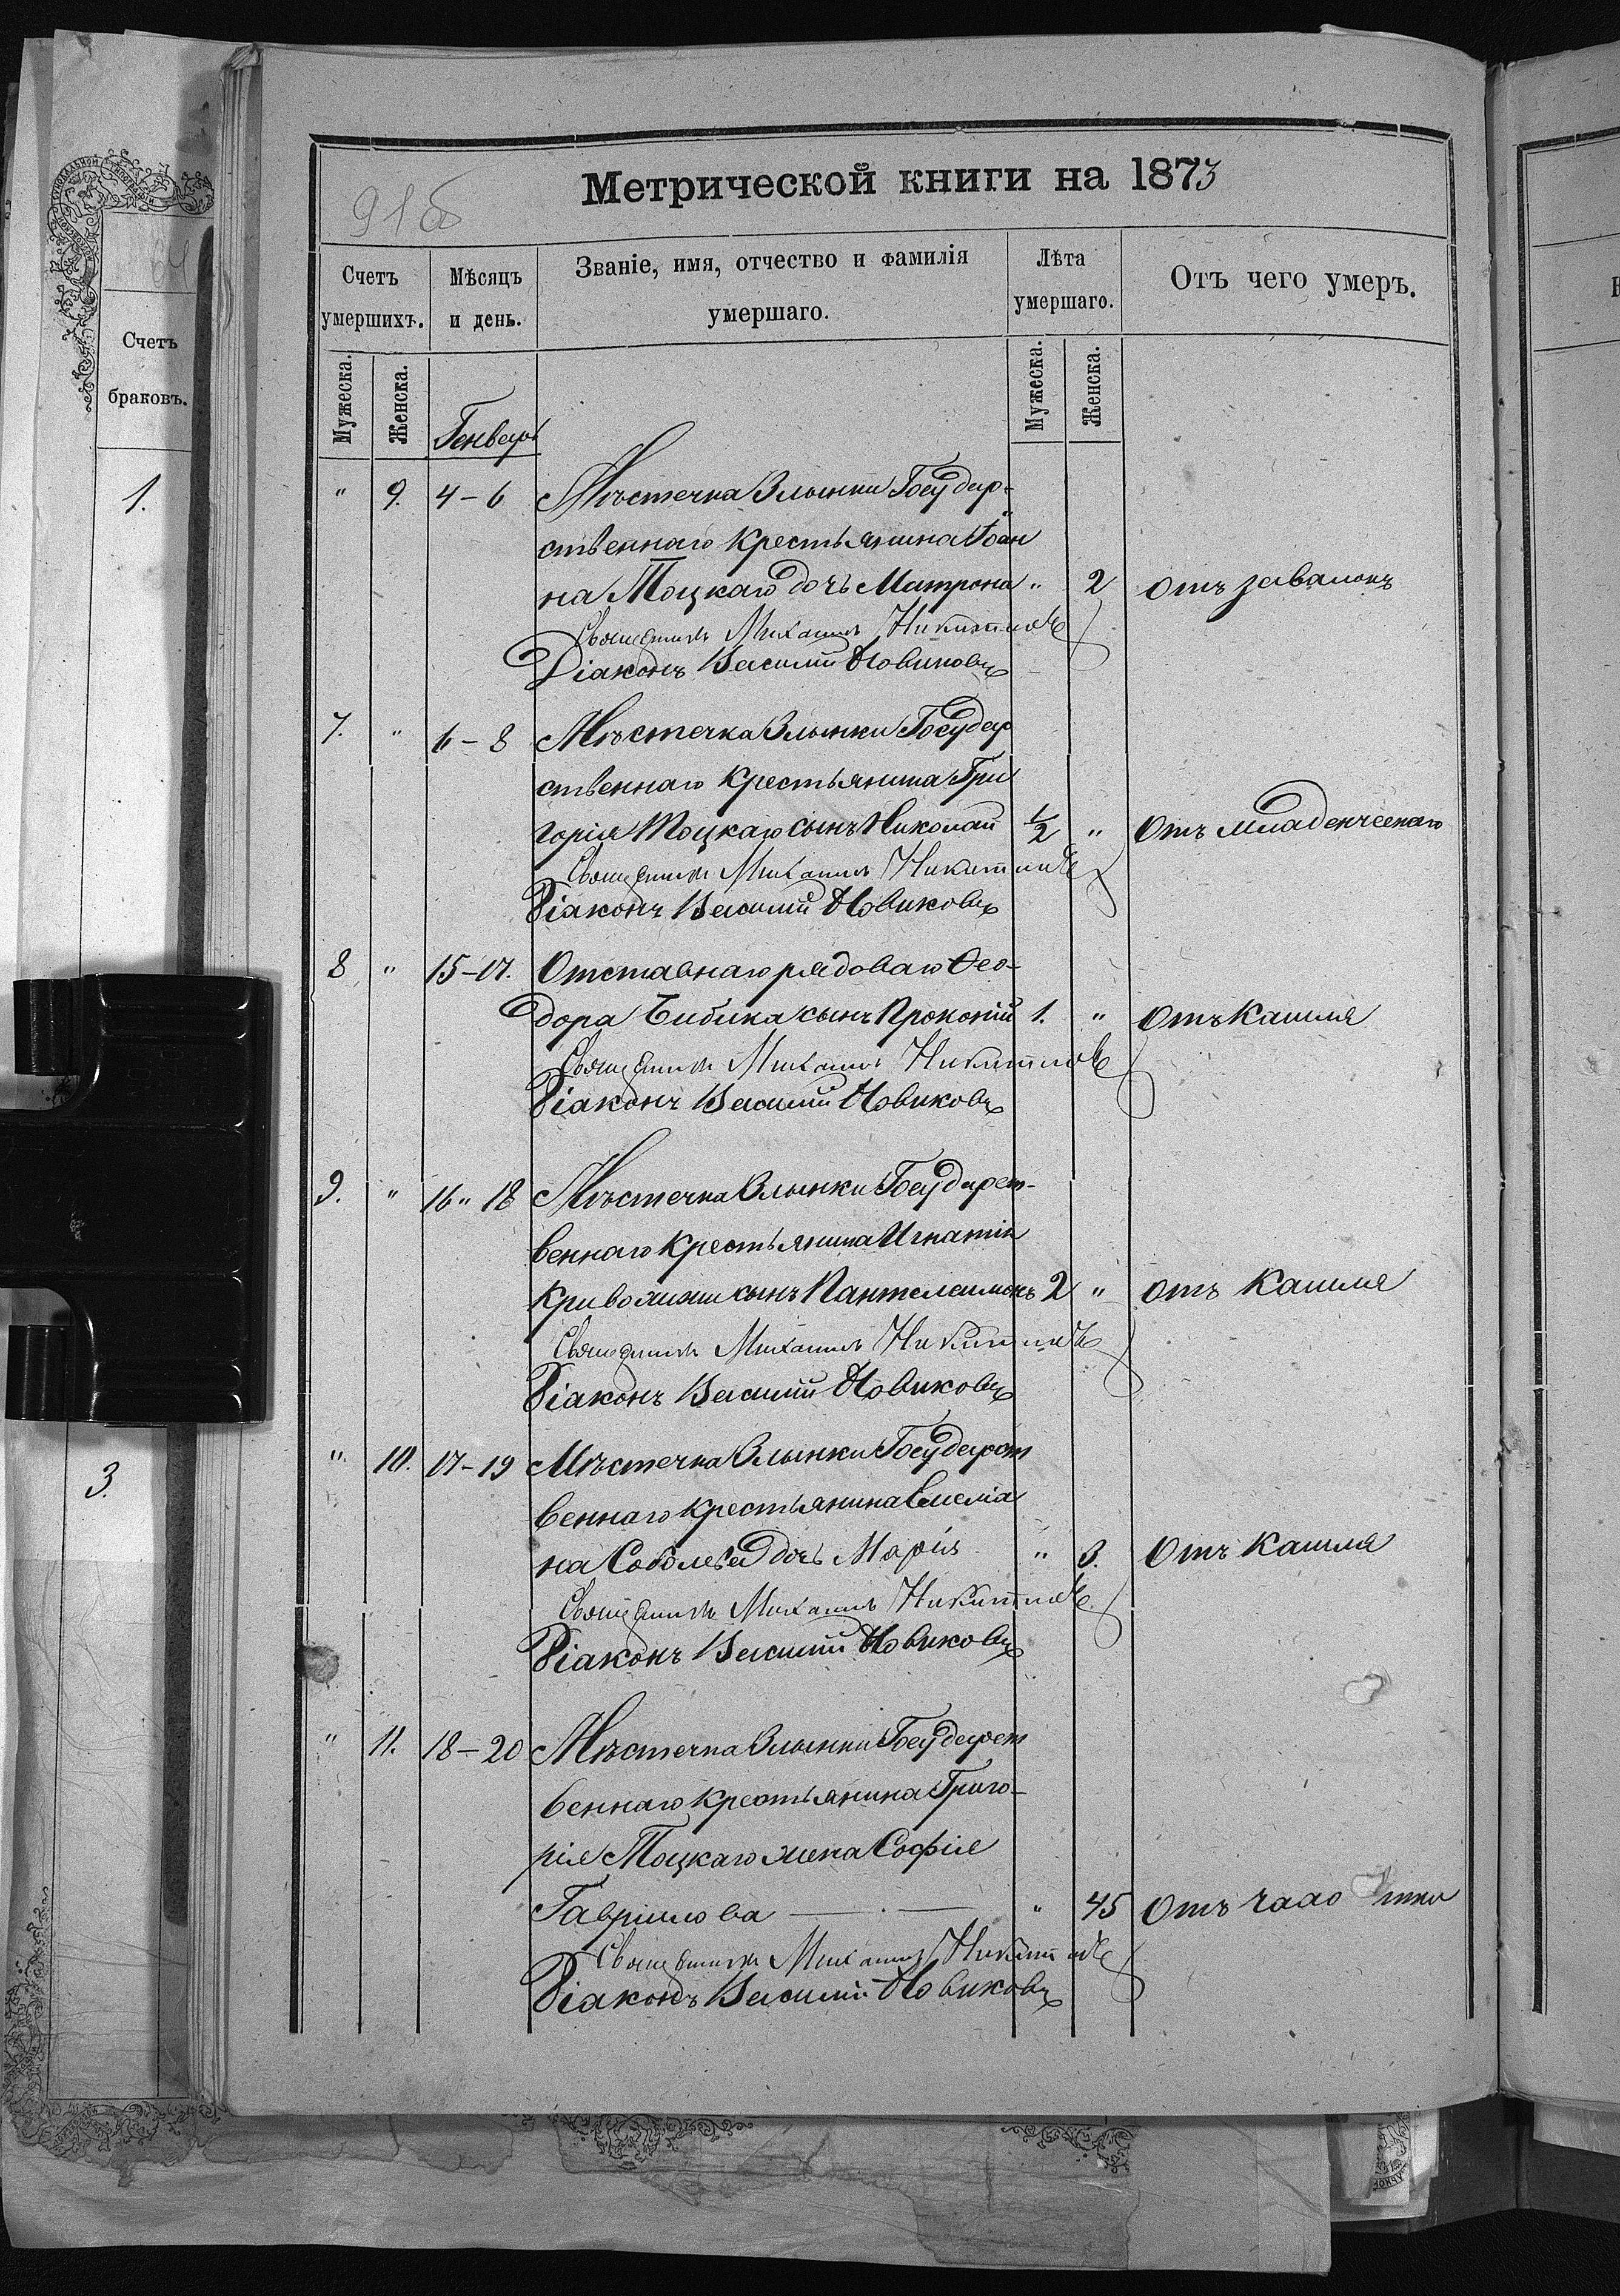 Метрической книги на 1873
91об
Счетъ умершихъ.
Мѣсяцъ и день.
Званіе, имя, отчество и фамилія умершаго.
Лѣта умершаго.
Отъ чего умеръ.
Мужеска.
Женска.
Генварь
Мужеска.
Женска.
" 9. 4-6 Мѣстечка Злынки Государ-
ственнаго крестьянина Іоан
на Тоцкаго дочь Матрона " 2 отъ завалокъ
Священникъ Михаилъ
Діаконъ Василій Новиковъ
7. " 6-8 Мѣстечка Злынки Государ
ственнаго крестьянина Гри
горія Тоцкаго сынъ Николай 1/2 " Отъ младенческаго
Священникъ Михаилъ
Діаконъ Василій Новиковъ
8 " 15-17. Отставнаго рядоваго Ѳео-
дора Бибика сынъ Прокопій 1. " Отъ Кашля
Священникъ Михаилъ
Діаконъ Василій Новиковъ
9. " 16"18 Мѣстечка Злынки Государст-
веннаго крестьянина Игнатія
сынъ Пантелеимонъ 2 " отъ Кашля
Священникъ Михаилъ
Діаконъ Василій Новиковъ
" 10. 17-19 Мѣстечка Злынки Государст
веннаго крестьянина Емеліа
на Соболева дочь Марія " 3. Отъ Кашля
Священникъ Михаилъ
Діаконъ Василій Новиковъ
" 11. 18-20 Мѣстечка Злынки Государст
веннаго крестьянина Григо-
рія Тоцкаго жена Софія
Гавріилова — . — " 45 Отъ
Священникъ Михаилъ
Діаконъ Василій Новиковъ
Счетъ браковъ.
1.
3.